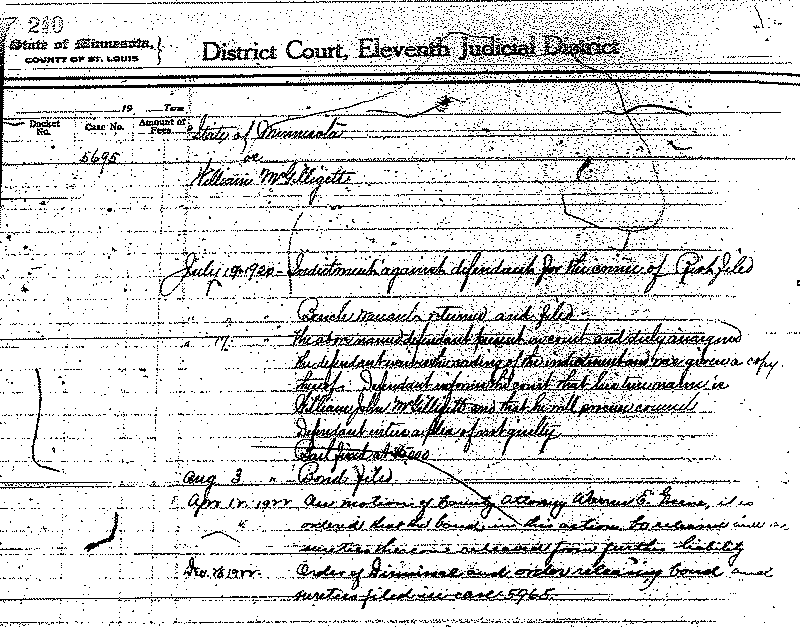 240
State of Minnesota,
COUNTY OF ST. LOUIS
District Court, Eleventh Judicial District
19 Term
Docket No. Case No. Amount of Fees
State of Minnesota
5695 vs.
William McGilligott
July 19 1920 - Indictment against defendant for the crime of Riot filed
" " Bench Warrant returned and filed
" " The above named defendant present in court and duly arraigned
the defendant waives the reading of the indictment and was given a copy
thereof. Defendant informs the court that his true name is
William John McGilligott and that he will procure counsel
Defendant enters a plea of not guilty
Bail fixed at
Aug 3 " Bond filed
Apr 1922 On motion of County Attorney Warren E. Greene, it is
" ordered that the bond in this action be released and
sureties thereon released from further liability
Dec 1922 Order of Dismissal and order releasing bond and
sureties filed in case 5965